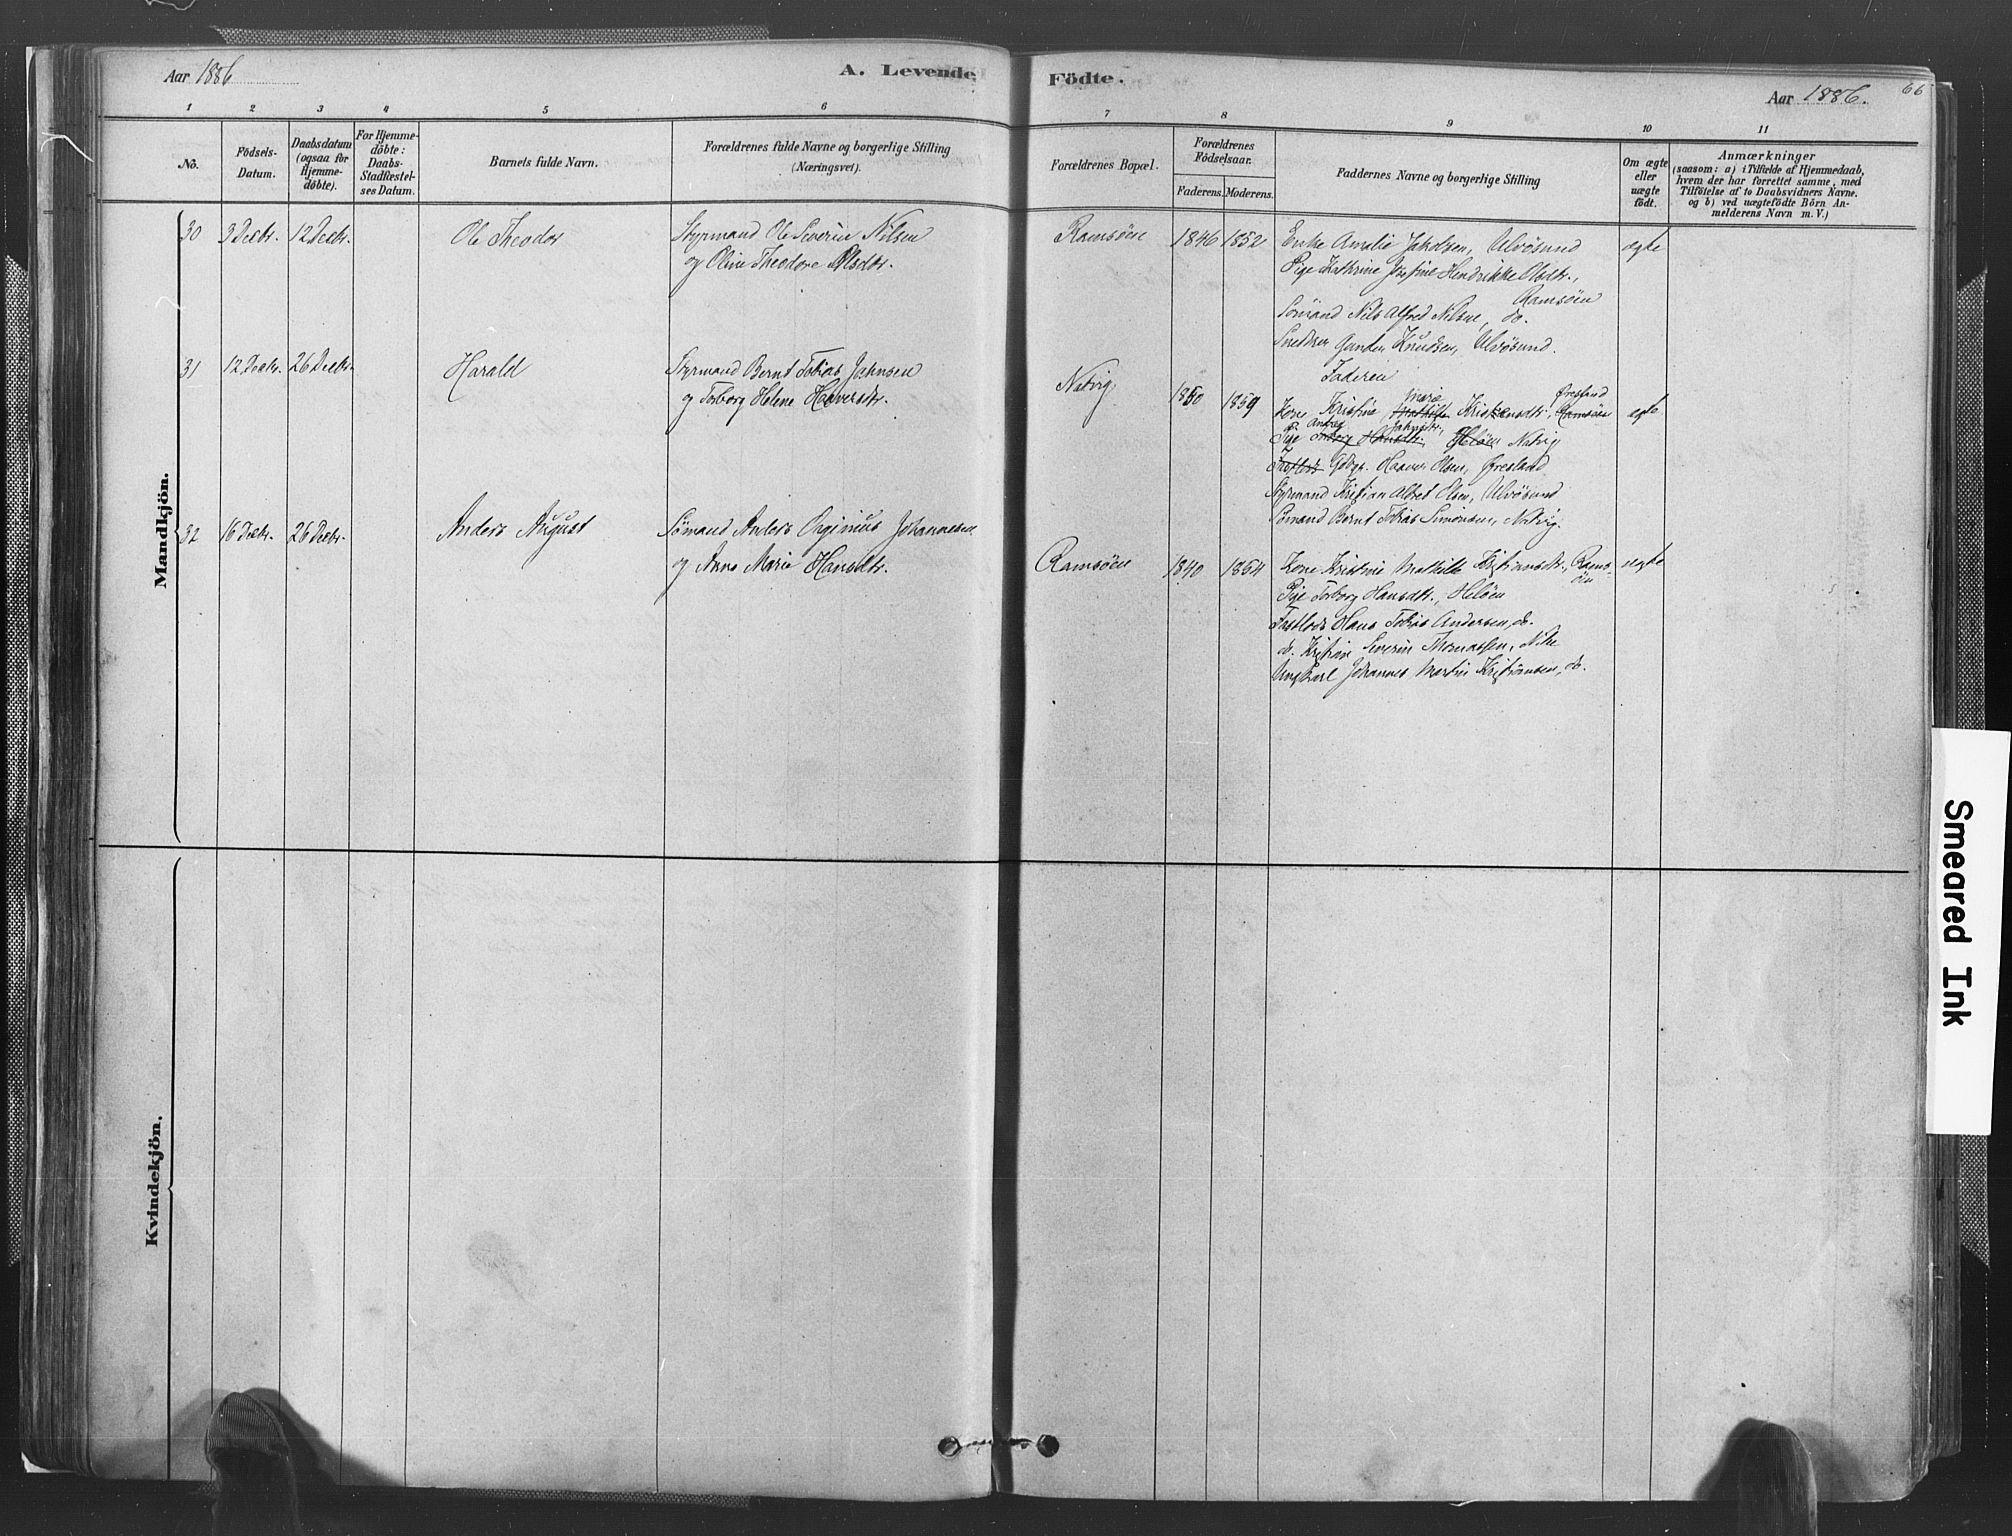 Aar 1886
A. Levende
Födte.
Aar 1886.
66
1 2 3 4 5 6 7 8 9 10 11
No.
Födsels-
Datum.
Daabsdatum
(ogsaa for
Hjemme-
döbte).
For Hjemme-
döbte:
Daabs-
Stadfæstel-
ses Datum.
Barnets fulde Navn.
Forældrenes fulde Navne og borgerlige Stilling
(Næringsvei).
Forældrenes Bopæl.
Forældrenes
Födselsaar.
Faderens. Moderens.
Faddernes Navne og borgerlige Stilling
Om ægte
eller
uægte
födt.
Anmærkninger
(saasom: a) i Tilfælde af Hjemmedaab,
hvem der har forrettet samme, med
Tilföielse af to Daabsvidners Navne.
og b) ved uægtefödte Börn An-
melderens Navn m.V.)
Mandkjön.
30 3 Decbr. 12 Decbr. Ole Theodor
Styrmand Ole Severin Nilsen
og Oline Theodore Olsdtr.
Ramsöen 1846 1852
Enke Amalie Jakobsen, Ulvösund
Pige Kathrine Josefine Hendrikke Olsdtr.,
Ramsöen
Sömand Nils Alfred Nilsen, do.
Snedker Gunder Knudsen, Ulvösund.
Faderen
ægte
31 12 Decbr. 26 Decbr. Harald
Styrmand Bernt Tobias Jahnsen
og Torborg Helene Haaversdtr.
Natvig 1850 1859
Marie Øresland
Kone Kristine Mathilde Kristensdtr. Ramsöen
Andrea Jahnsdtr.,
Pige Torborg Hansdtr., Helöen Natvig
Inderst Gdbgr. Haaver Olsen, Øresland
Styrmand Kristian Alfred Olsen, Ulvösund
Sömand Bernt Tobias Simonsen, Natvig.
ægte
32 16 Decbr. 26 Decbr. Anders August
Sömand Anders Orginius Johannesen
og Anne Marie Hansdtr.
Ramsöen 1840 1854
Kone Kristine Mathilde Kristiansdtr., Rams-
öen
Pige Torborg Hansdtr., Helöen
Hans Tobias Andersen, do.
do. Kristian Severin Thomassen,
Ungkarl Johannes Martin Kristiansen, do.
ægte
Kvindekjön.
Smeared Ink